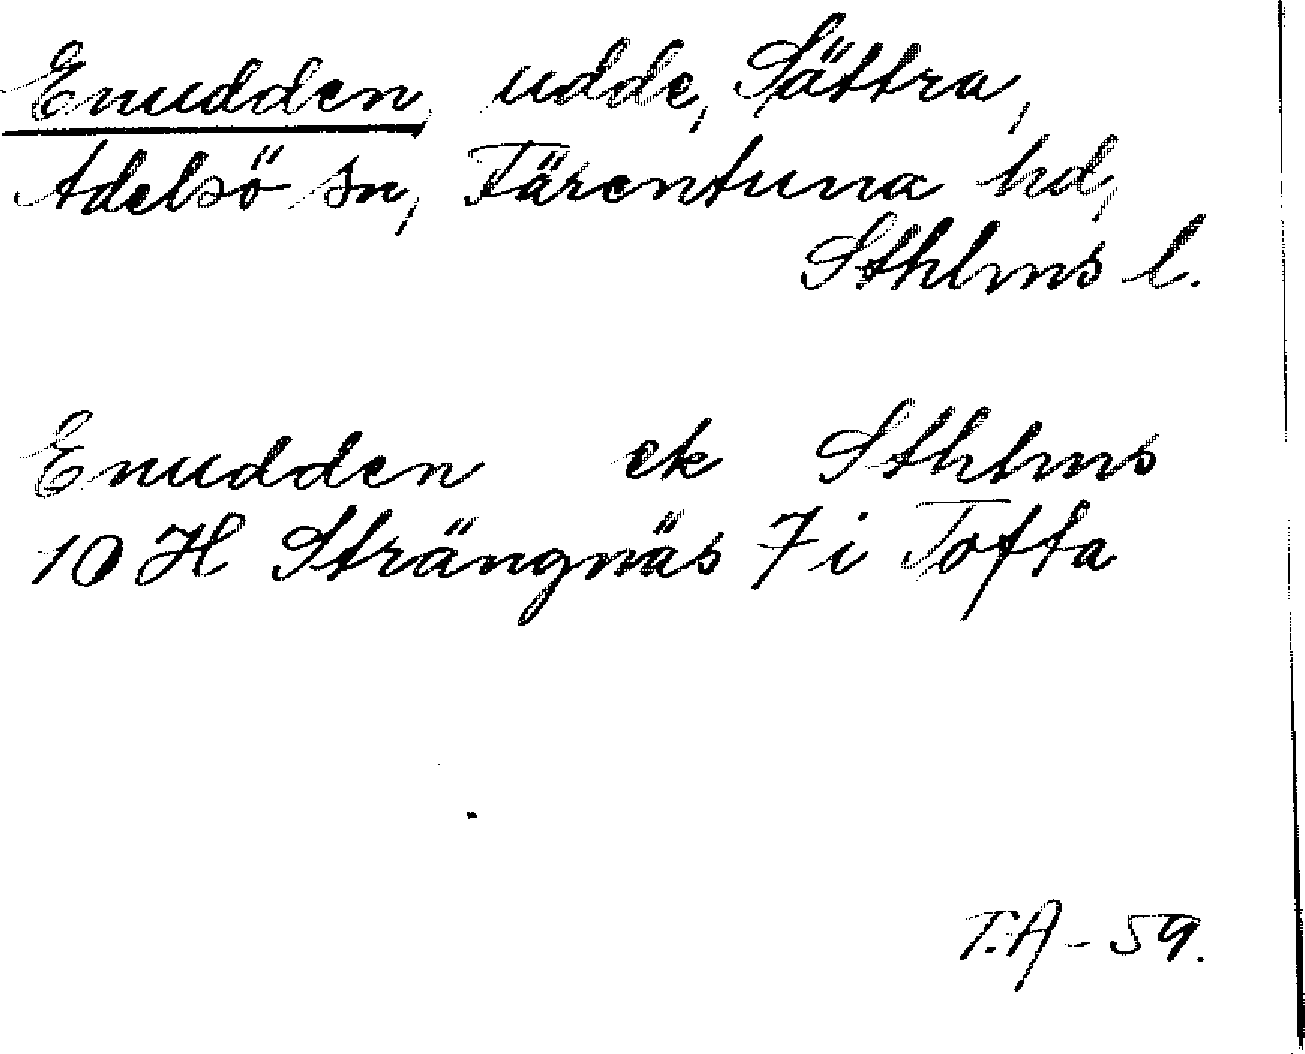 Enudden, udde, Sättra,
Adelsö sn, Färentuna hd,
Sthlms l.
Enudden ek Sthlms
10 H Strängnäs 7 i Tofta
T.A - 59.